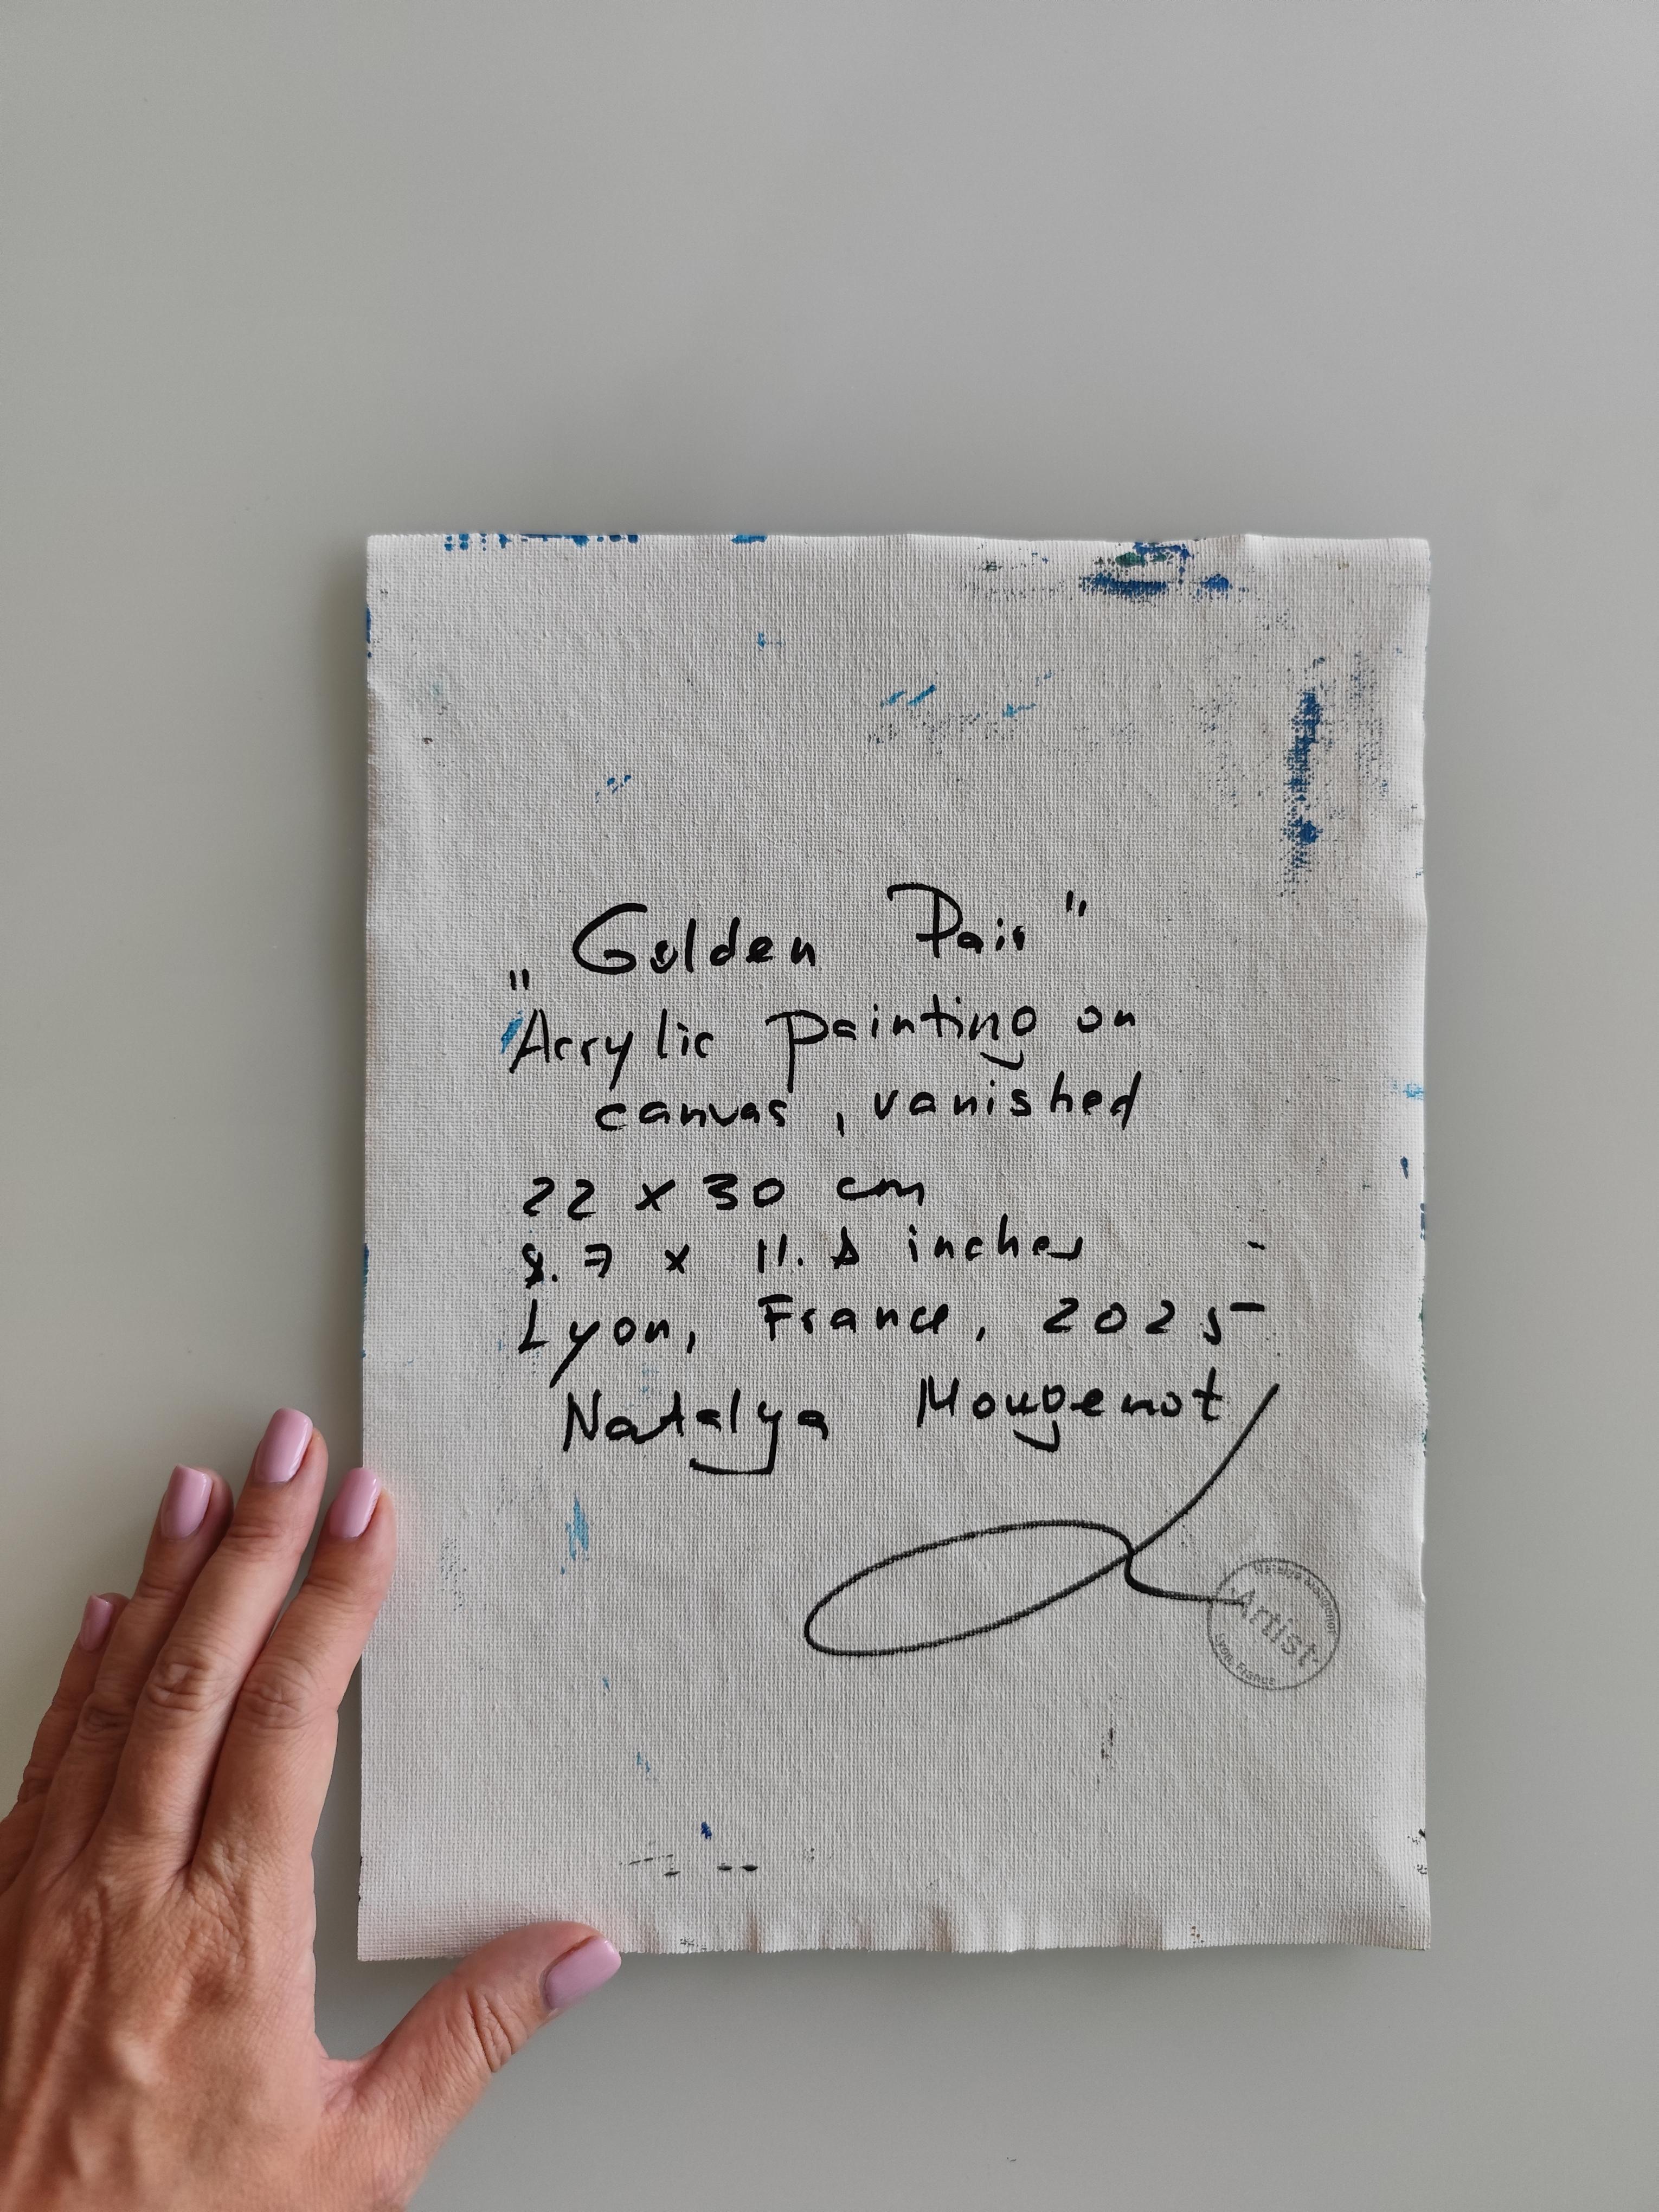 "Golden Pair"
Acrylic painting on
canvas, vanished
22 x 30 cm
8.7 x 11.8 inches
Lyon, France, 2025
Natalya Mougenot
Natalya Mougenot
Artist
Lyon, France